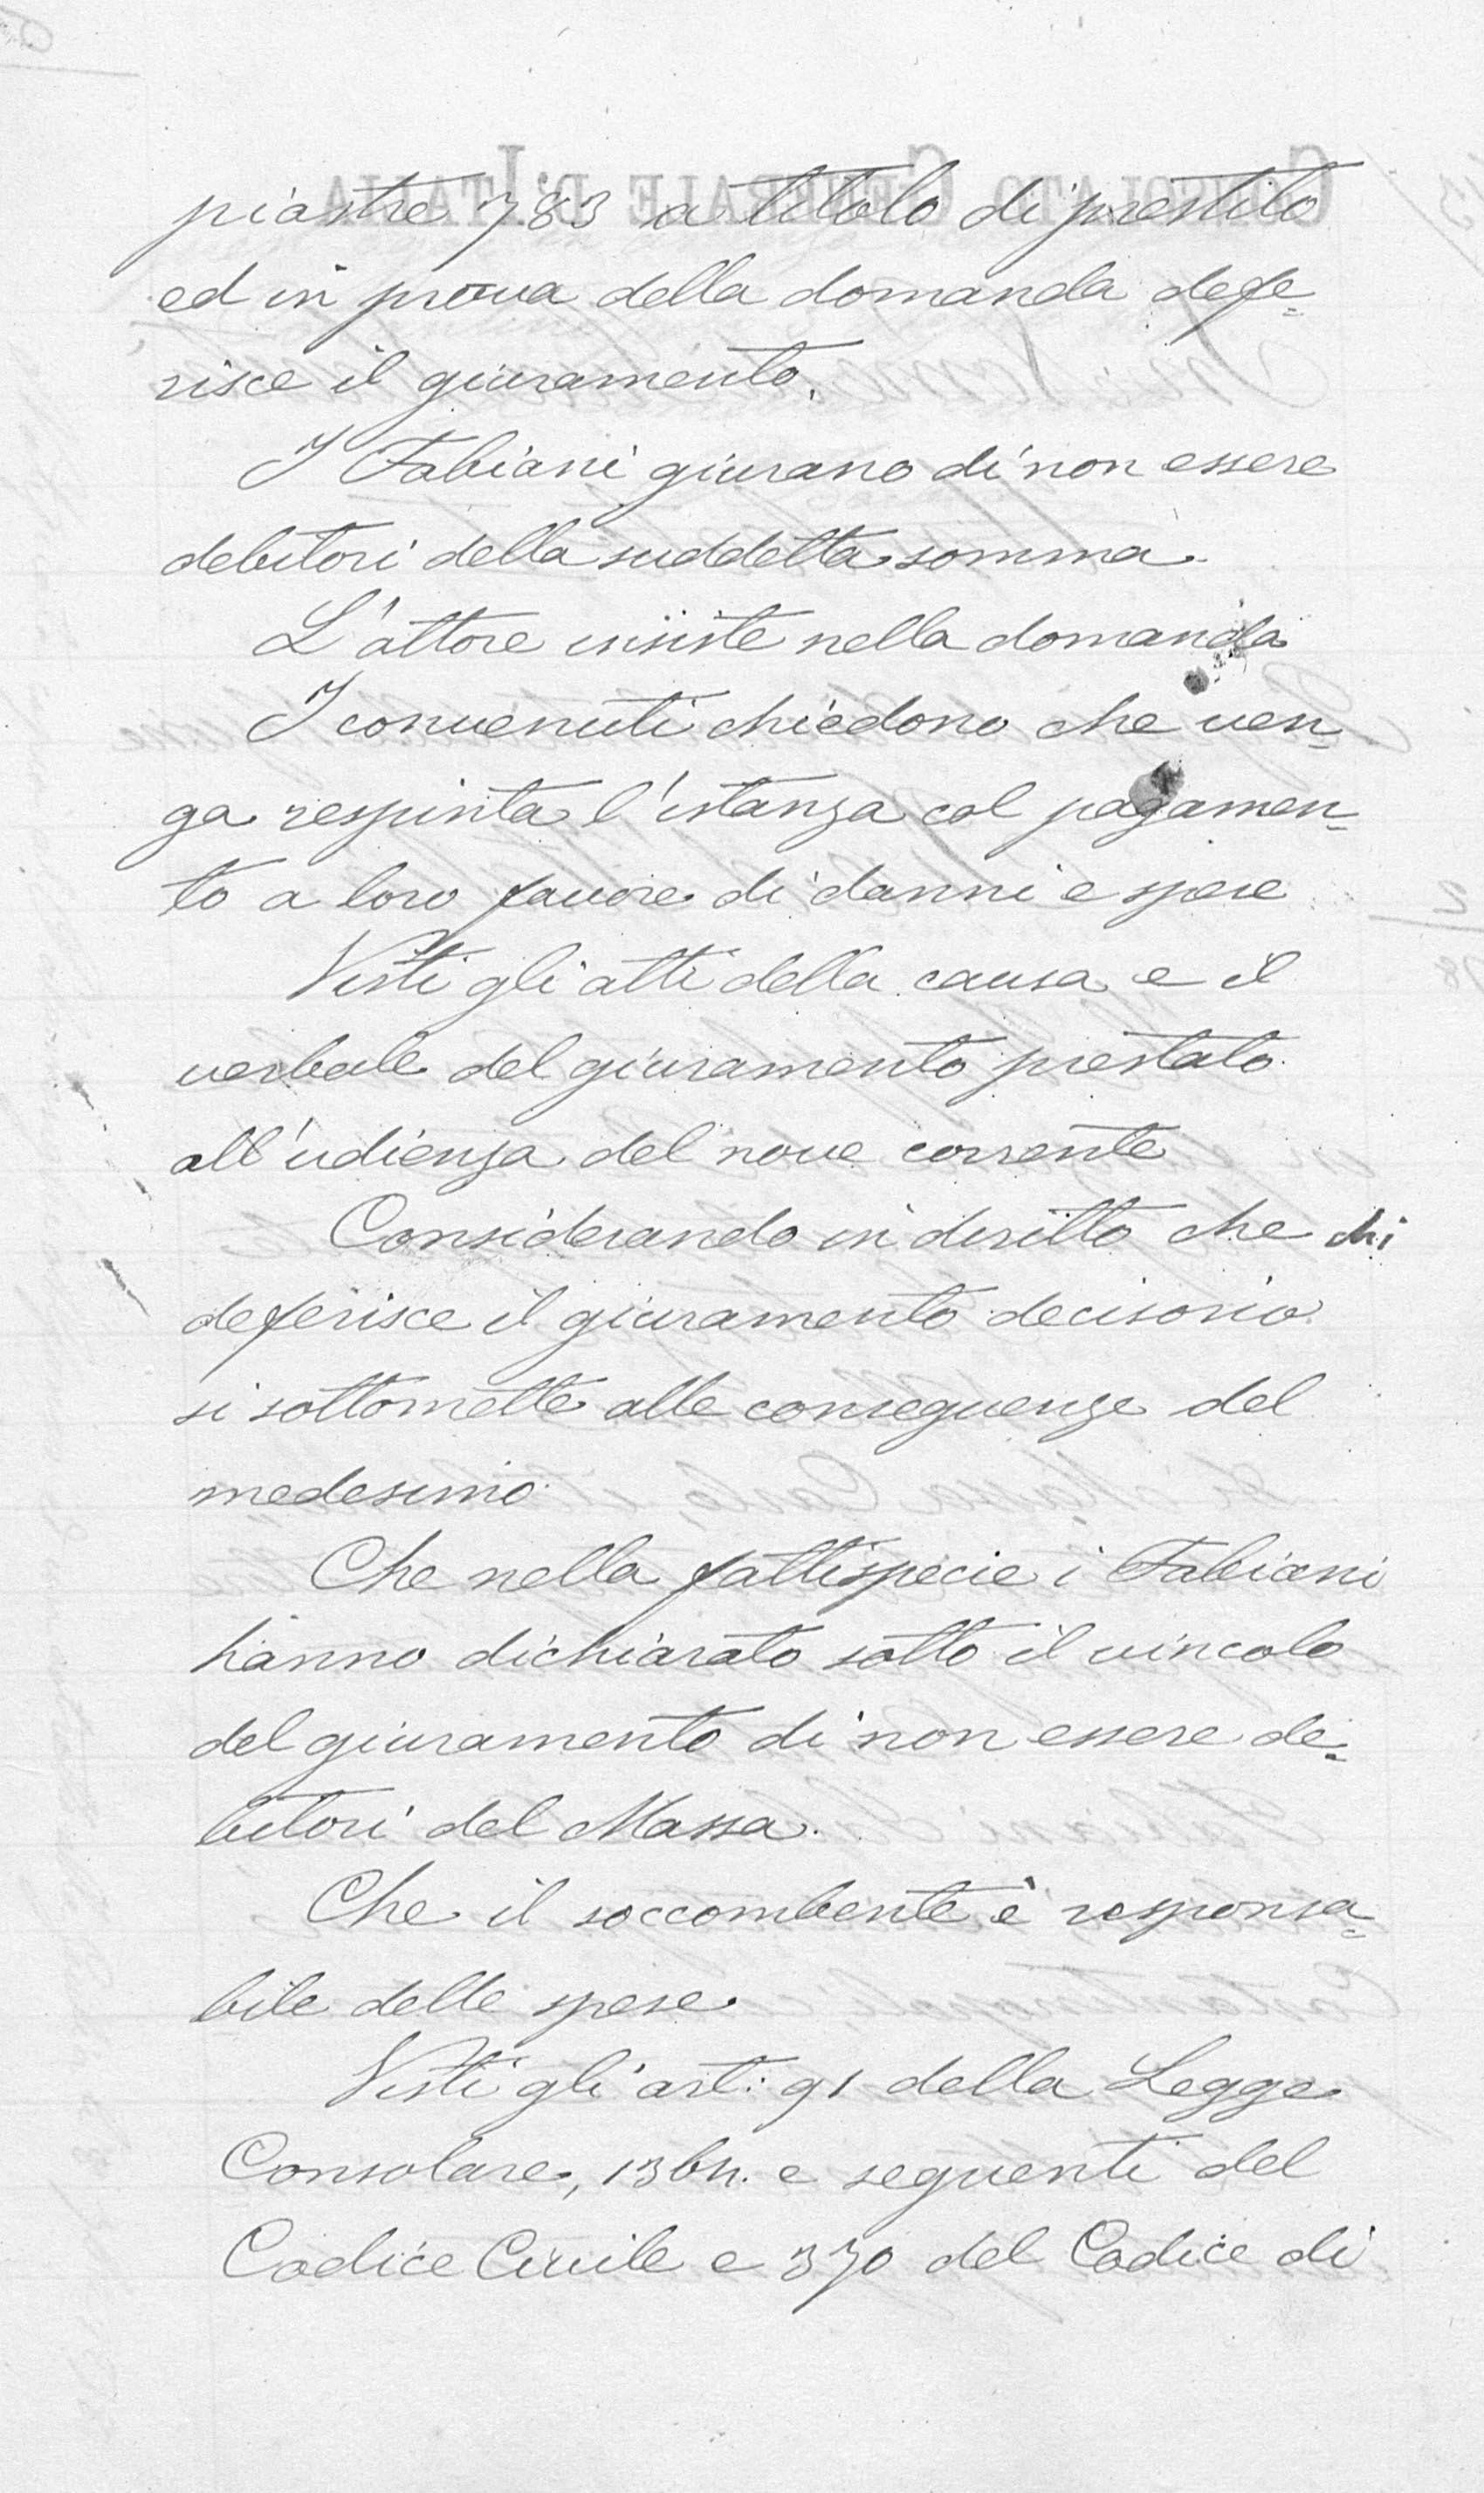 piastre 783 a titolo di prestito
ed in prova della domanda defe=
risce il giuramento.
I Fabiani giurano di non essere
debitori della suddetta somma.
L'attore insiste nella domanda
I convenuti chiedono che ven=
ga respinta l'istanza col pagamen=
to a loro favore di danni e spese
Visti gli atti della causa e il
verbale del giuramento prestato
all'udienza del nove corrente
Considerando in diritto che chi
deferisce il giuramento decisorio
si sottomette alle conseguenze del
medesimo
Che nella fattispecie i Fabiani
hanno dichiarato sotto il vincolo
del giuramento di non essere de=
bitori del Massa.
Che il soccombente è responsa=
bile delle spese.
Visti gli art: 91 della Legge
Consolare, 1364. e seguenti del
Codice Civile e 370 del Codice di